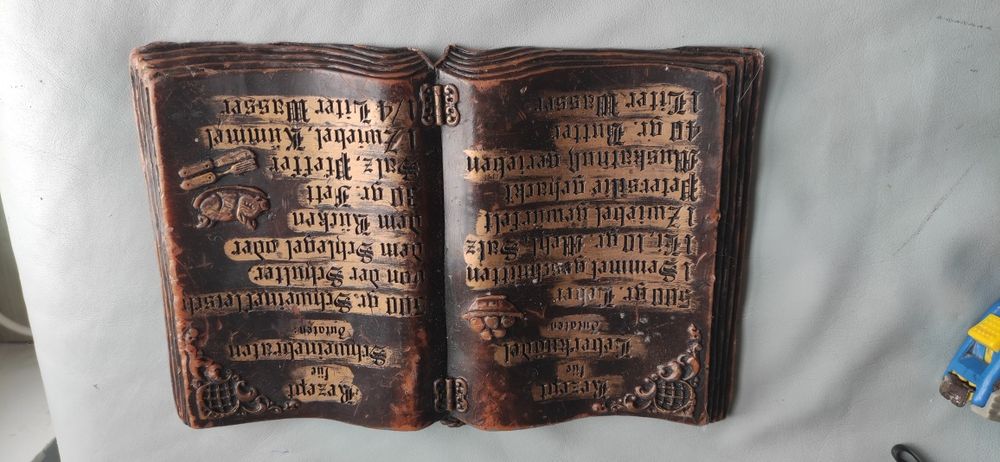 Rezept
für
Leberknödel
Zutaten:
500 gr. Leber
1 Semmel geschnitten
1 Ei, 10 gr. Mehl, Salz
1 Zwiebel gewürfelt
Petersilie gehackt
Muskatnuß gerieben
40 gr. Butter
1 Liter Wasser
Rezept
für
Schweinebraten
Zutaten:
500 gr. Schweinefleisch
von der Schulter
dem Schlegel oder
dem Rücken
30 gr. Fett
Salz, Pfeffer
1 Zwiebel, Kümmel
1/4 Liter Wasser